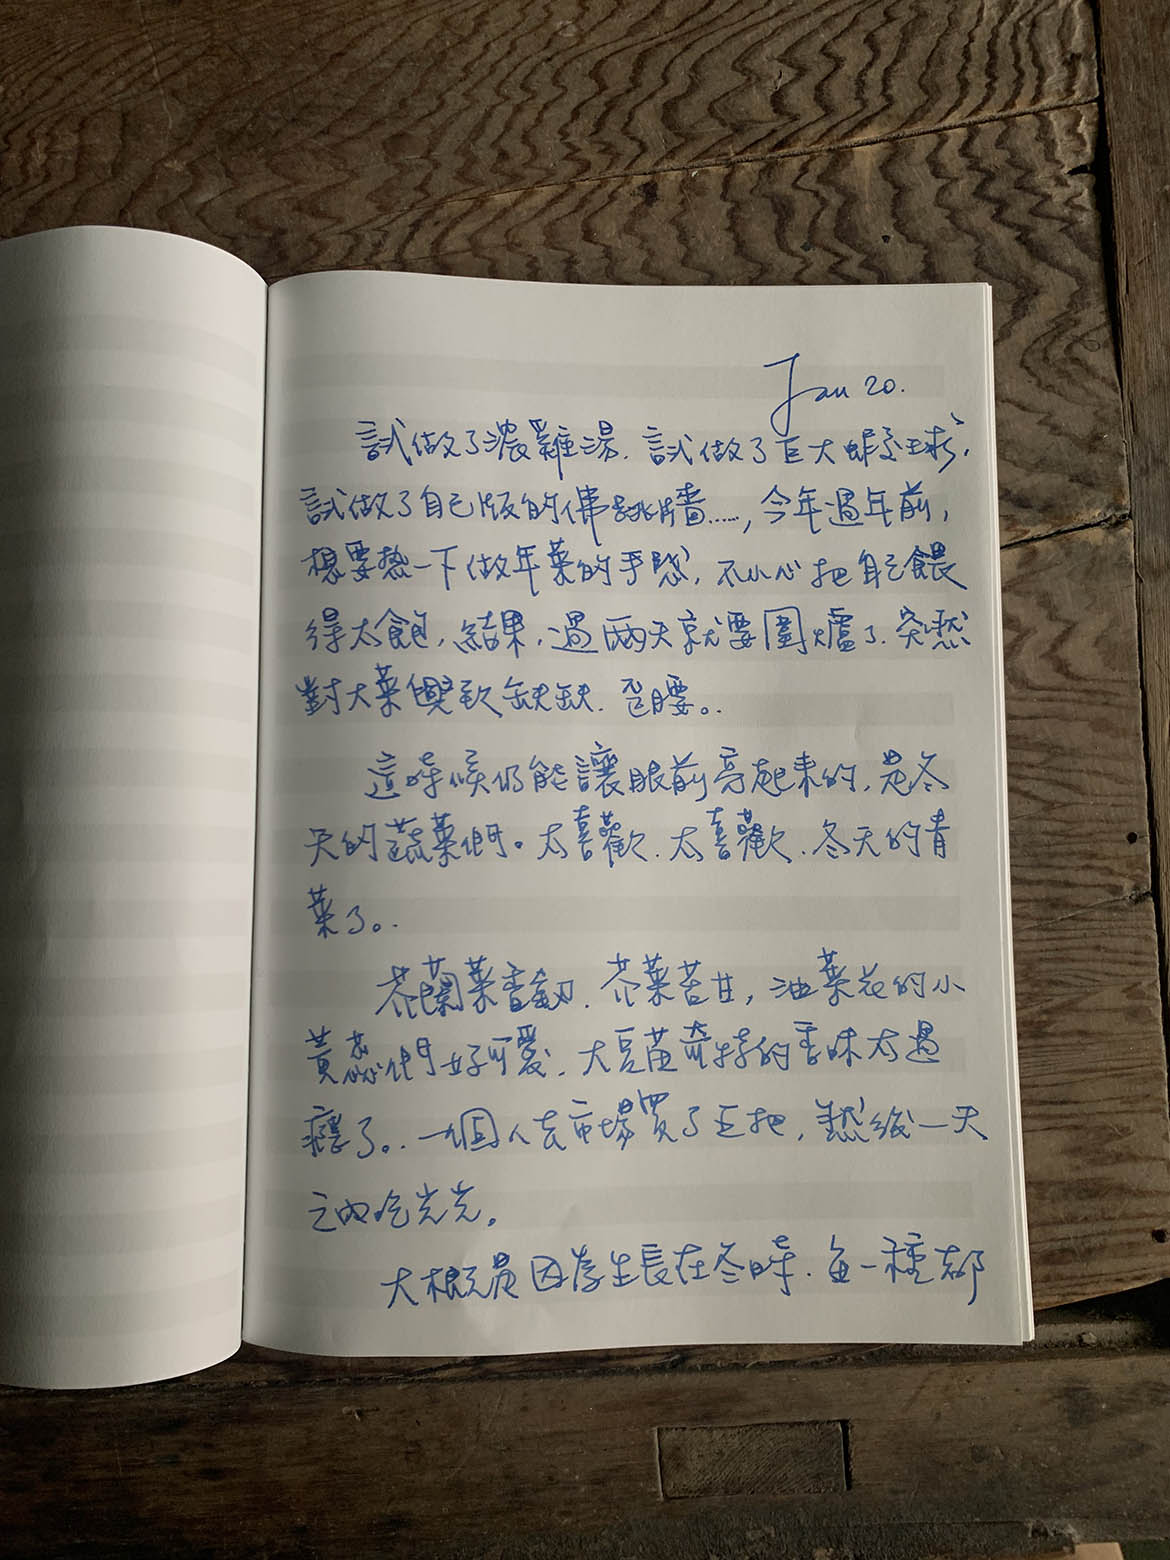 Jan 20.
試做了濃雞湯、試做了巨大蝦丸球、
試做了自己版的佛跳牆……，今年過年前，
想要熱一下做年菜的手感，不小心把自己餵
得太飽，結果，過兩天就要圍爐了、突然
對大菜興致缺缺、歪腰。
這時候仍能讓眼前亮起來的，是冬
天的蔬菜們。太喜歡、太喜歡、冬天的青
菜了。
芥蘭菜香韌、芥菜苦甘，油菜花的小
黃蕊們好可愛、大豆苗奇特的香味太過
癮了。一個人去市場買了五把，然後一天
之內吃光光。
大概是因為生長在冬時、每一種都